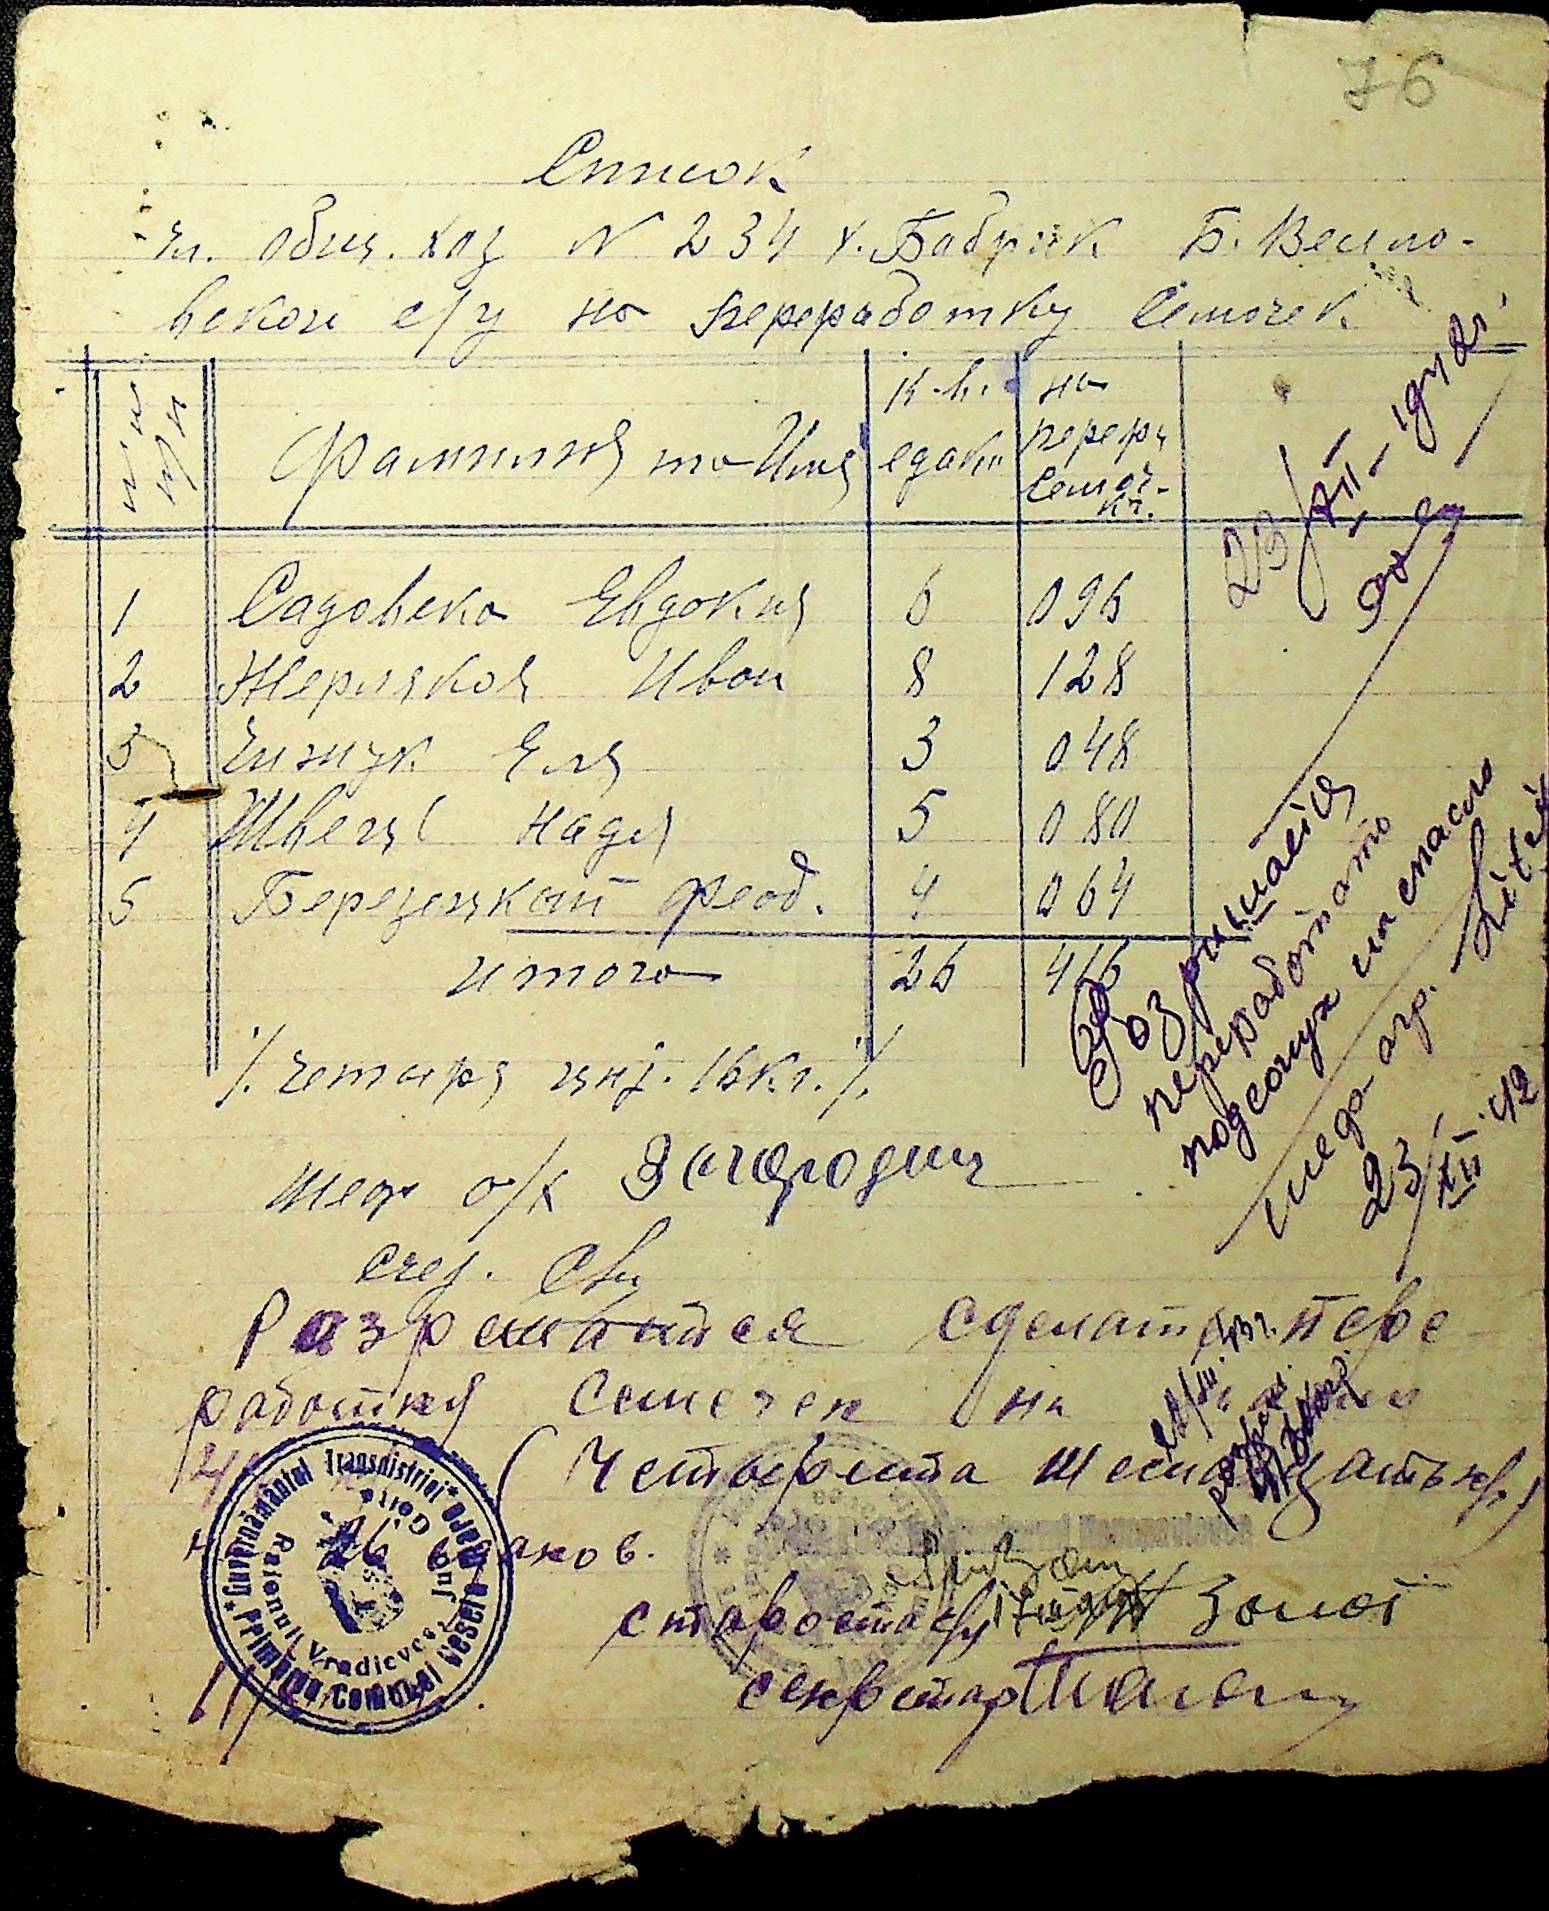 76
Список
чл. общ. хоз N 234 х. Бабрик Б. Весило-
вской с/у на переработку Семочек
п/п
Фамилия то Имя
К-в. едаки
на перера Семоч- кг.
1 Садовска Евдокия 6 096
2 Жерлякоя Иван 8 128
3 Чижук Еля 3 048
4 Швець Надя 5 080
5 Березецкий Феод. 4 064
итого 26 416
/. четыря цнт. 16 кг. /.
Шеф о/х Загородни
счет.
Разрешаится сделать пере-
работку Семечек на
(Четыреста Шеснадцать кг)
26 едаков.
староста с/у
секретар
Разришаеться
переработать
подсолнух на масло
агр.
23/XII 42
23/XII-
Guvernământul Transnistriei
Jud. Golta
Raionul Vradievca
Primăria Comunei Vesela